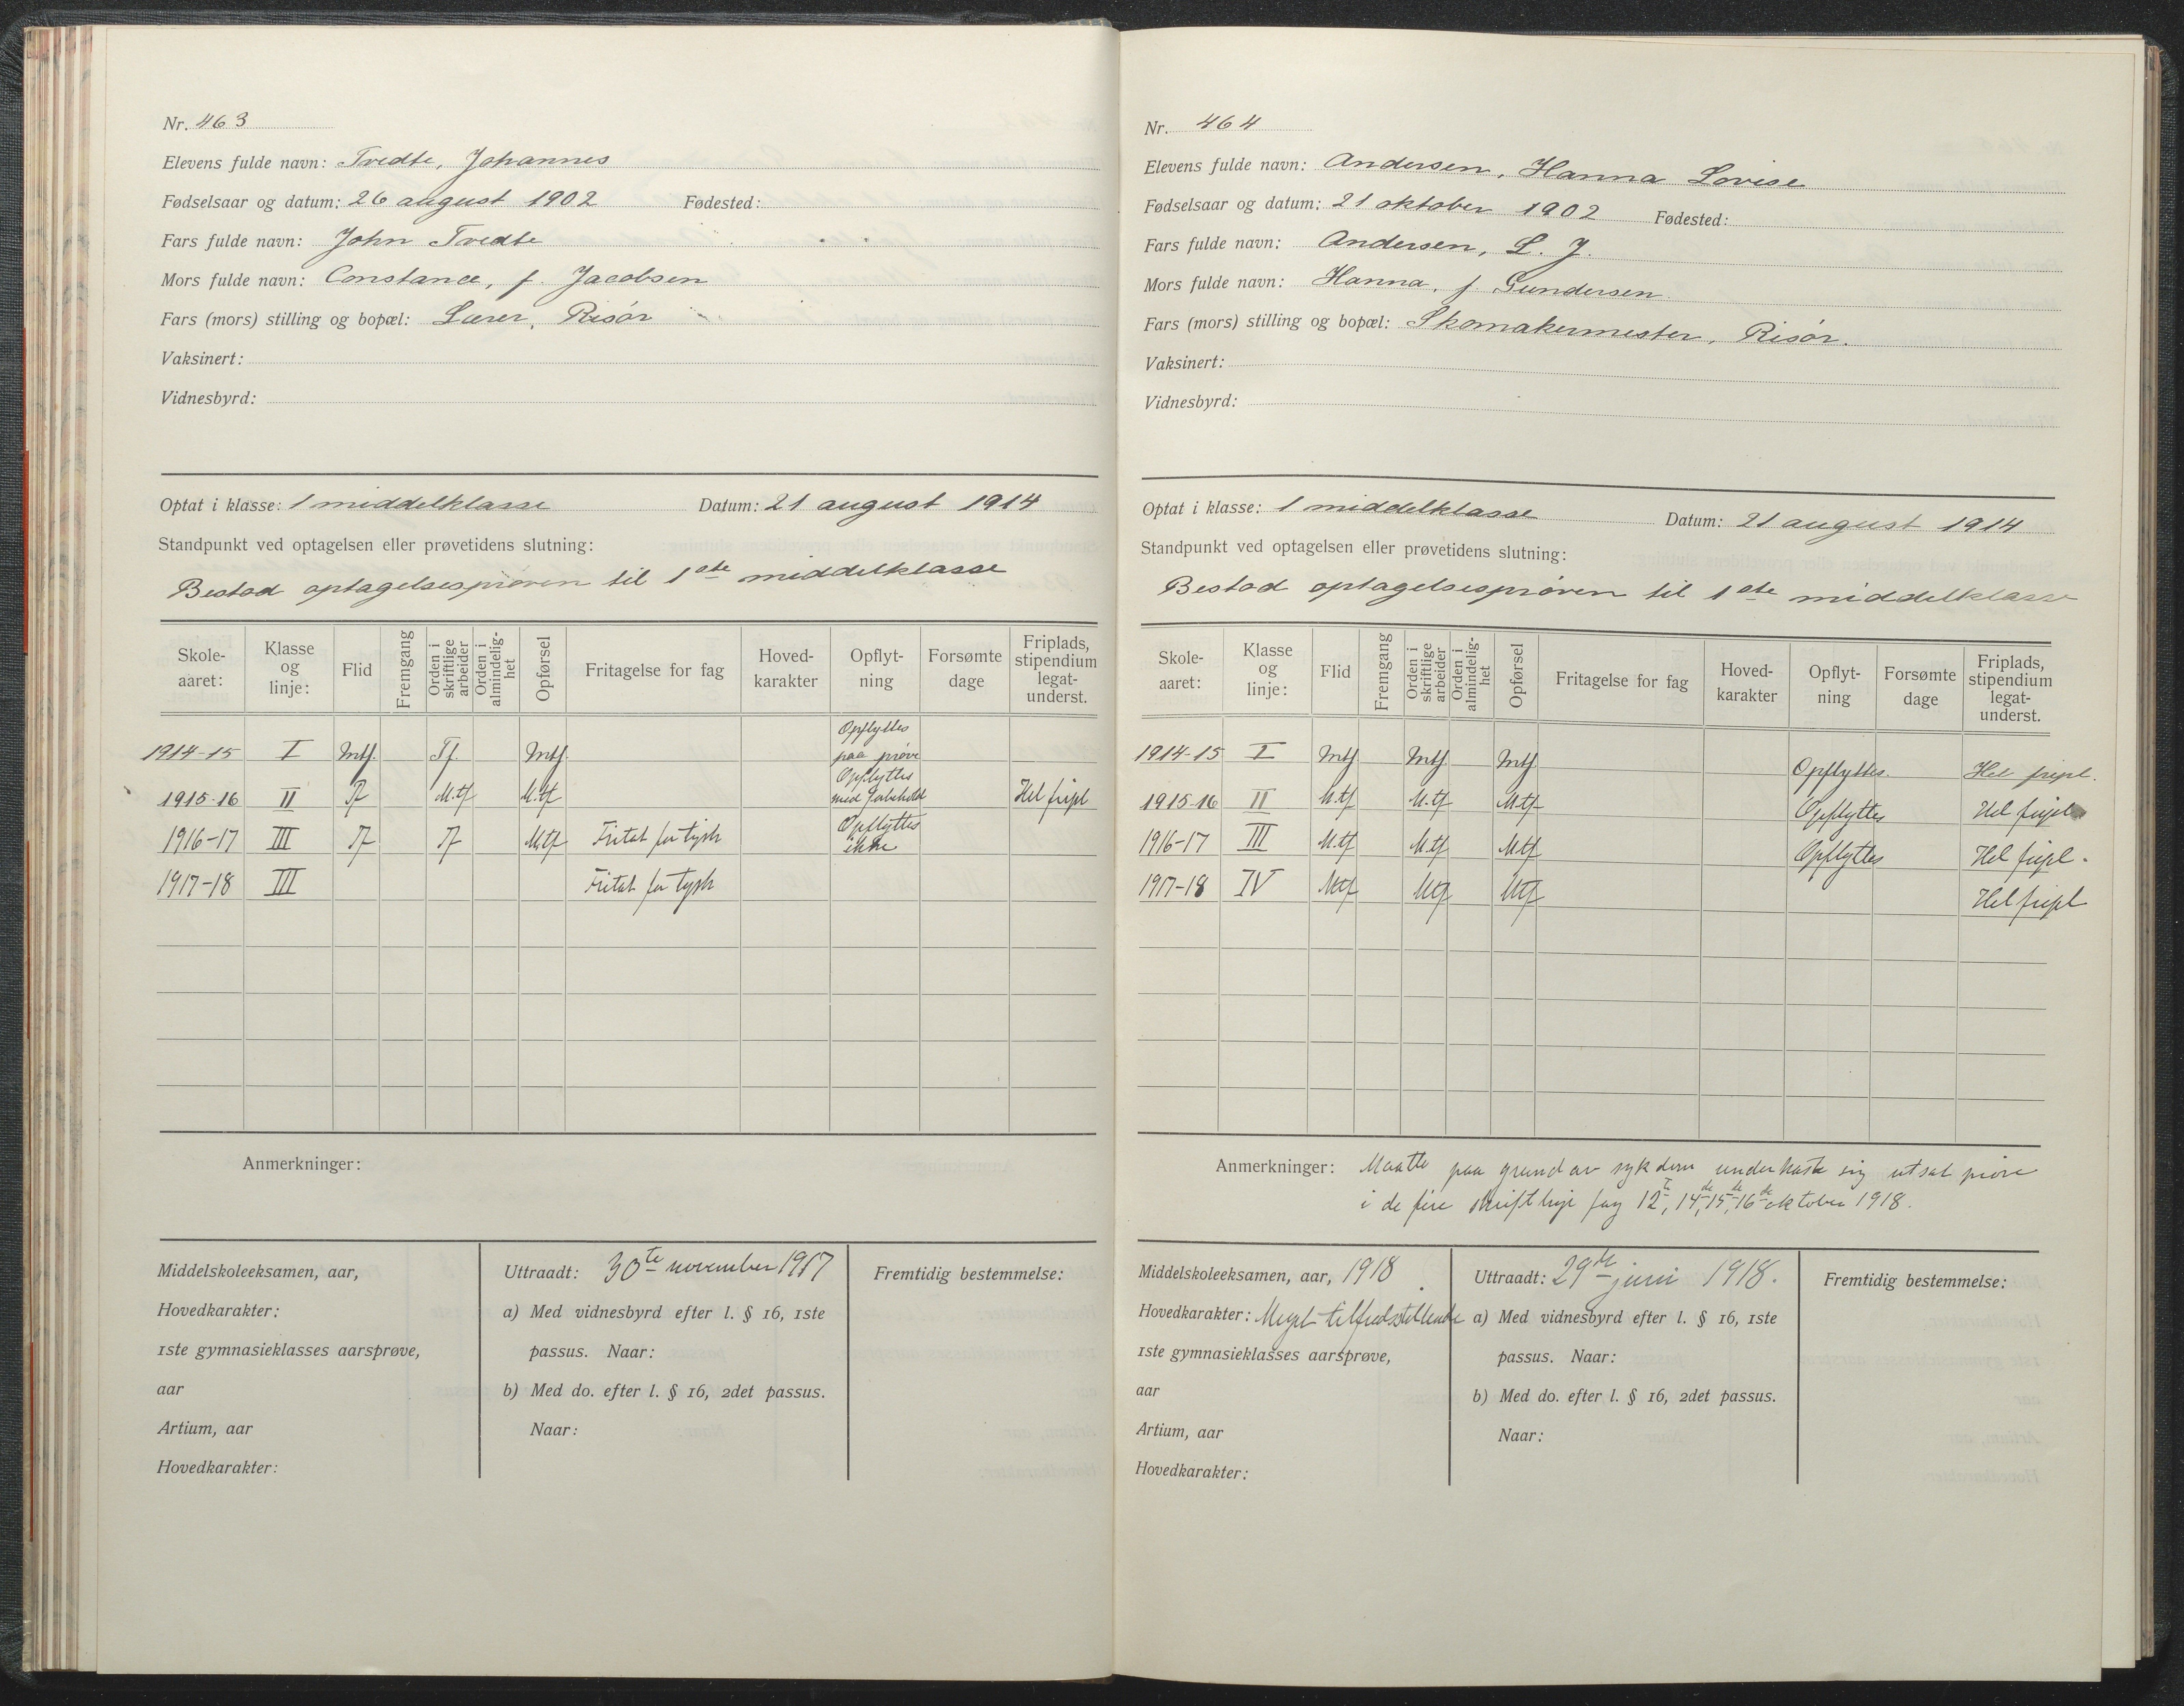 Nr. 463
Elevens fulde navn: Tvedte, Johannes
Fødselsaar og datum: 26 august 1902 Fødested:
Fars fulde navn: John Tvedte
Mors fulde navn: Constance, f. Jacobsen
Fars (mors) stilling og bopæl: Lærer, Risør
Vaksinert:
Vidnesbyrd:
Optat i klasse: 1 middelklasse Datum: 21 august 1914
Standpunkt ved optagelsen eller prøvetidens slutning:
Bestod optagelsesprøven til 1ste middelklasse
Skole-aaret: Klasse og linje: Flid Fremgang Orden i skriftlige arbeider Orden i almindelig-het Opførsel Fritagelse for fag Hoved-karakter Opflyt-ning Forsømte dage Friplads, stipendium legat-underst.
1914-15 I Mtf. Tf. Mtf. Opflyttes paa prøve
1915-16 II Tf M.tf M.tf Opflyttes med forbehold Hel fripl
1916-17 III Tf Tf M.tf Fritat for tysk Opflyttes ikke
1917-18 III Fritat for tysk
Anmerkninger:
Middelskoleeksamen, aar,
Hovedkarakter:
1ste gymnasieklasses aarsprøve,
aar
Artium, aar
Hovedkarakter:
Uttraadt: 30te november 1917
a) Med vidnesbyrd efter l. § 16, 1ste
passus. Naar:
b) Med do. efter l. § 16, 2det passus.
Naar:
Fremtidig bestemmelse:
Nr. 464
Elevens fulde navn: Andersen, Hanna Lovise
Fødselsaar og datum: 21 oktober 1902 Fødested:
Fars fulde navn: Andersen, L. J.
Mors fulde navn: Hanna, f. Gundersen
Fars (mors) stilling og bopæl: Skomakermester, Risør.
Vaksinert:
Vidnesbyrd:
Optat i klasse: 1 middelklasse Datum: 21 august 1914
Standpunkt ved optagelsen eller prøvetidens slutning:
Bestod optagelsesprøven til 1ste middelklasse
Skole-aaret: Klasse og linje: Flid Fremgang Orden i skriftlige arbeider Orden i almindelig-het Opførsel Fritagelse for fag Hoved-karakter Opflyt-ning Forsømte dage Friplads, stipendium legat-underst.
1914-15 I Mtf Mtf Mtf Opflyttes. Hel fripl.
1915-16 II M.tf M.tf M.tf Opflyttes Hel fripl
1916-17 III M.tf M.tf M.tf Opflyttes Hel fripl.
1917-18 IV Mtf Mtf Mtf Hel fripl
Anmerkninger: Maatte paa grund av sykdom underkaste sig utsat prøve
i de fire skriftlige fag 12te, 14de, 15de, 16de oktober 1918.
Middelskoleeksamen, aar, 1918
Hovedkarakter: Meget tilfredsstillende
1ste gymnasieklasses aarsprøve,
aar
Artium, aar
Hovedkarakter:
Uttraadt: 29de juni 1918.
a) Med vidnesbyrd efter l. § 16, 1ste
passus. Naar:
b) Med do. efter l. § 16, 2det passus.
Naar:
Fremtidig bestemmelse: